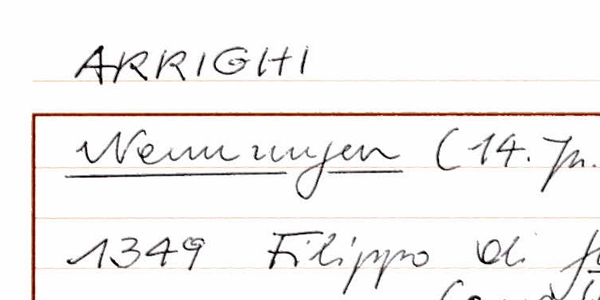 ARRIGHI
Nennungen (14. Jh.
1349 Filippo di